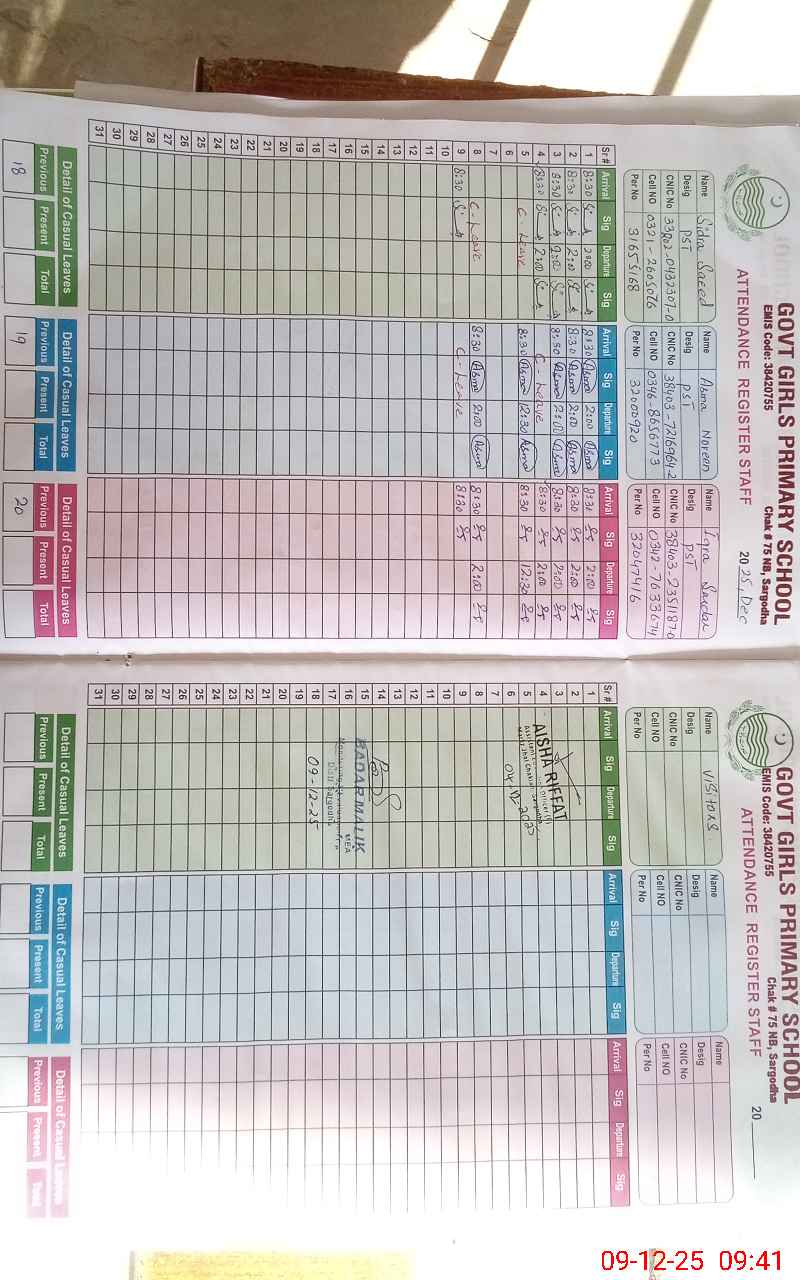 GOVT GIRLS PRIMARY SCHOOL
EMIS Code: 38420755 Chak # 75 NB, Sargodha
ATTENDANCE REGISTER STAFF 2025, Dec
Name Sidra Saeed
Desig PST
CNIC No 33202-0432307-0
Cell NO 0321-2605076
Per No 31655168
Name Asma Noreen
Desig PST
CNIC No 38403-7216964-2
Cell NO 0346-8656773
Per No 32000920
Name Iqra Sardar
Desig PST
CNIC No 38403-2351187-0
Cell NO 0342-7633674
Per No 32047416
Sr # Arrival Sig Departure Sig Arrival Sig Departure Sig Arrival Sig Departure Sig
1 8:30 2:00 8:30 Asma 2:00 Asma 8:30 2:00
2 8:30 2:00 8:30 Asma 2:00 Asma 8:30 2:00
3 8:30 2:00 8:30 Asma 2:00 Asma 8:30 2:00
4 8:30 2:00 C-Leave 8:30 2:00
5 C-Leave 8:30 Asma 12:30 Asma 8:30 12:30
6
7
8 C-Leave 8:30 Asma 2:00 Asma 8:30 2:00
9 8:30 C-Leave 8:30
10
11
12
13
14
15
16
17
18
19
20
21
22
23
24
25
26
27
28
29
30
31
Detail of Casual Leaves Detail of Casual Leaves Detail of Casual Leaves
Previous Present Total Previous Present Total Previous Present Total
18 19 20
GOVT GIRLS PRIMARY SCHOOL
EMIS Code: 38420755 Chak # 75 NB, Sargodha
ATTENDANCE REGISTER STAFF 20
Name Visitors
Desig
CNIC No
Cell NO
Per No
Name
Desig
CNIC No
Cell NO
Per No
Name
Desig
CNIC No
Cell NO
Per No
Sr # Arrival Sig Departure Sig Arrival Sig Departure Sig Arrival Sig Departure Sig
1
2
3
4
5
6
7
8
9
10
11
12
13
14
15
16
17
18
19
20
21
22
23
24
25
26
27
28
29
30
31
AISHA RIFFAT
BADAR MALIK
MEA
Distt Sargodha
09-12-25
Detail of Casual Leaves Detail of Casual Leaves Detail of Casual Leaves
Previous Present Total Previous Present Total Previous Present Total
09-12-25 09:41